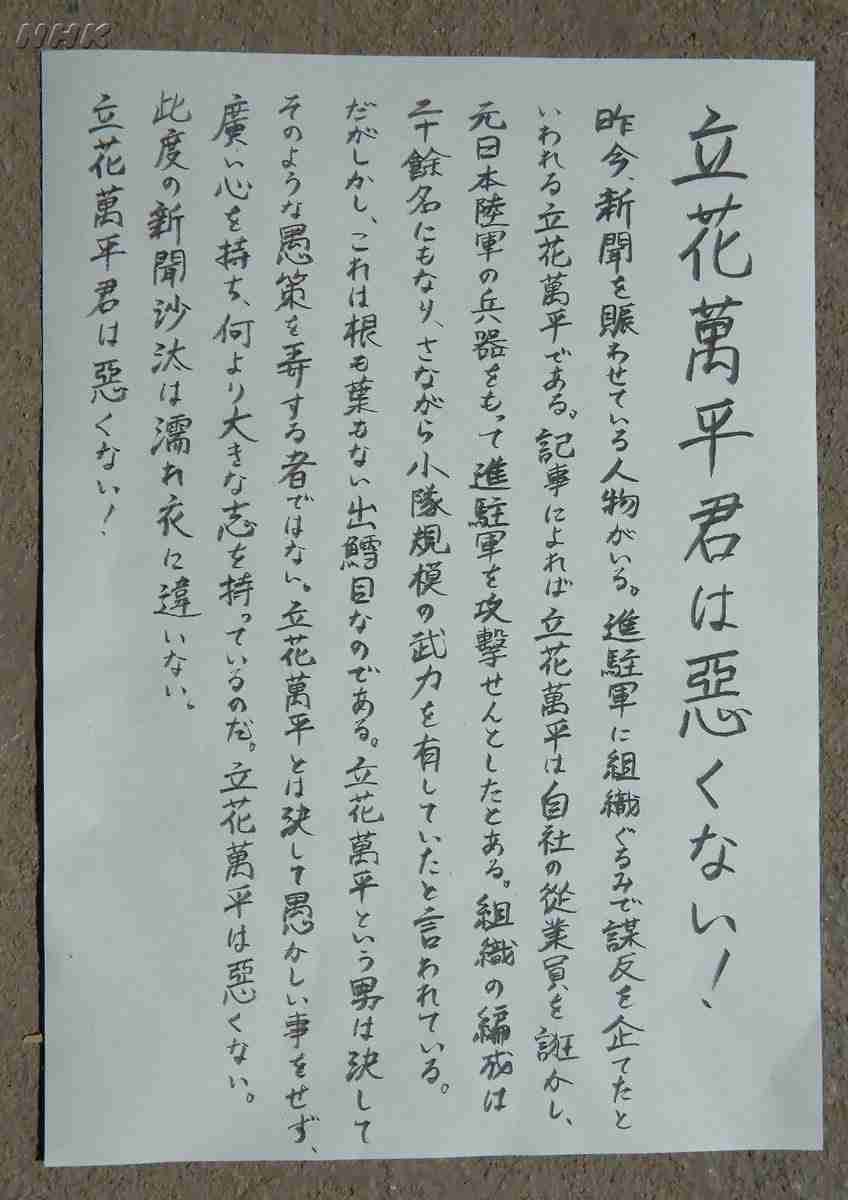 NHK
立花萬平君は惡くない！
昨今、新聞を賑わせている人物がいる。進駐軍に組織ぐるみで謀反を企てたと
いわれる立花萬平である。記事によれば立花萬平は自社の從業員を誑かし、
元日本陸軍の兵器をもって進駐軍を攻撃せんとしたとある。組織の編成は
二十餘名にもなり、さながら小隊規模の武力を有していたと言われている。
だがしかし、これは根も葉もない出鱈目なのである。立花萬平という男は決して
そのような愚策を弄する者ではない。立花萬平とは決して愚かしい事をせず、
廣い心を持ち、何より大きな志を持っているのだ。立花萬平は惡くない。
此度の新聞沙汰は濡れ衣に違いない。
立花萬平君は惡くない！